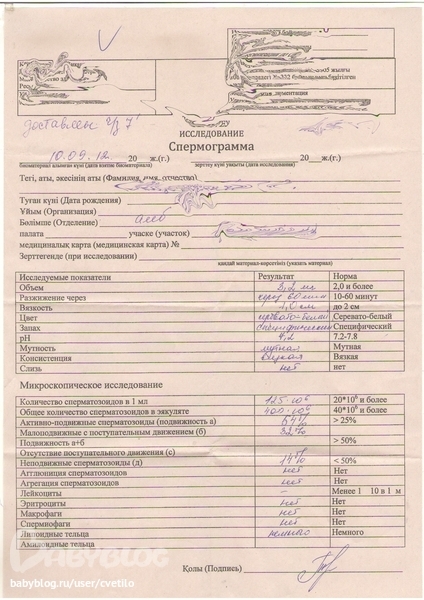 ИССЛЕДОВАНИЕ
Спермограмма
10.09.12 20 ж.(г.) 20 ж.(г.)
биоматериал алынған күні (дата взятия биоматериала) зерттеу күні уақыты (дата исследования)
Тегі, аты, әкесінің аты (Фамилия, имя, отчество)
Туған күні (Дата рождения)
Ұйым (Организация)
Бөлімше (Отделение) амб
палата учаске (участок)
медициналық карта (медицинская карта) №
Зерттегенде (при исследовании)
қандай материал-көрсетіңіз (указать материал)
Исследуемые показатели Результат Норма
Объем 3,2 мл 2,0 и более
Разжижение через через 60 мин 10-60 минут
Вязкость 1,0 см до 2 см
Цвет серовато-белый Серевато-белый
Запах специфический Специфический
pH 7.2-7.8
Мутность мутная Мутная
Консистенция вязкая Вязкая
Слизь нет нет
Микроскопическое исследование
Количество сперматозоидов в 1 мл 125·10⁶ 20*10⁶ и более
Общее количество сперматозоидов в эякуляте 400·10⁶ 40*10⁶ и более
Активно-подвижные сперматозоиды (подвижность а) 54% > 25%
Малоподвижные с поступательным движением (б) 32%
Подвижность а+б > 50%
Отсутствие поступательного движения (с)
Неподвижные сперматозоиды (д) 14% < 50%
Агглюция сперматозоидов нет Нет
Агрегация сперматозоидов нет Нет
Лейкоциты – Менее 1 10 в 1 м
Эритроциты нет Нет
Макрофаги нет Нет
Спермиофаги нет Нет
Липоидные тельца немного Немного
Амилоидные тельца
Қолы (Подпись)
BABYBLOG
babyblog.ru/user/cvetilo